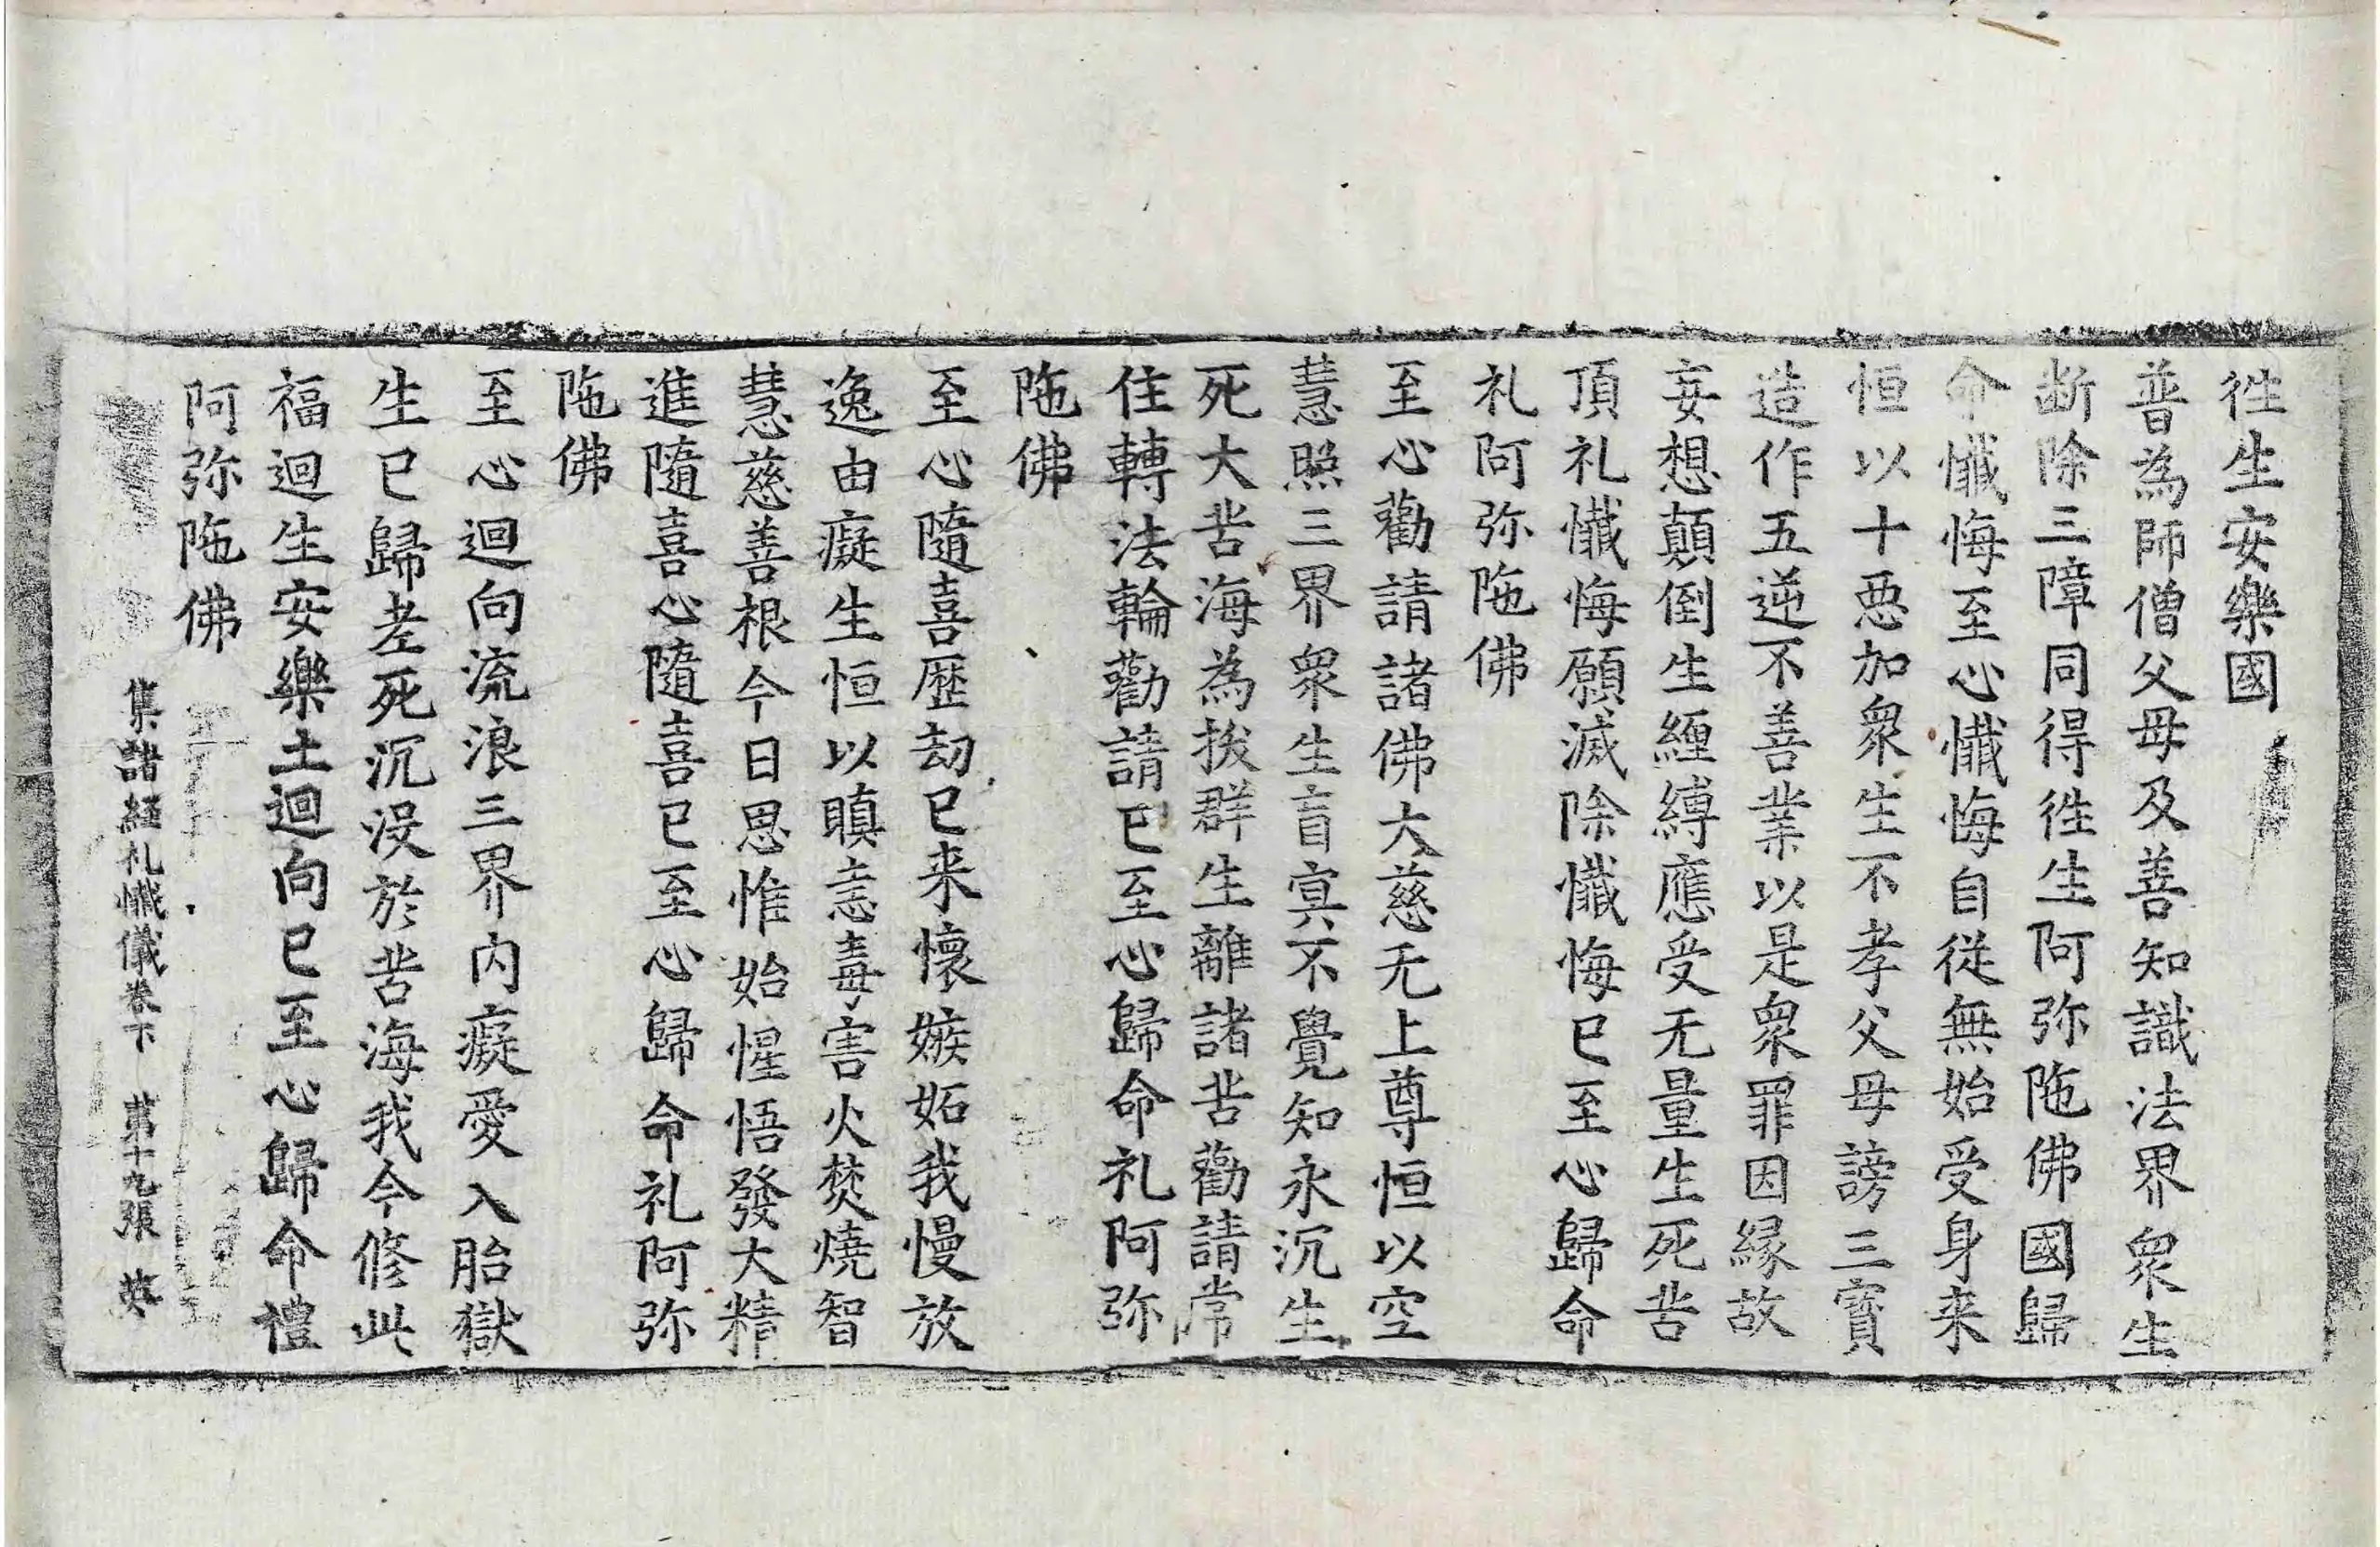 徃生安樂國
普為師僧父母及善知識法界衆生
断除三障同得徃生阿弥陁佛國歸
命懺悔至心懺悔自從無始受身来
恒以十惡加衆生不孝父母謗三寳
造作五逆不善業以是衆罪因縁故
妄想顛倒生纒縛應受无量生死苦
頂礼懺悔願滅除懺悔已至心歸命
礼阿弥陁佛
至心勸請諸佛大慈无上尊恒以空
慧照三界衆生盲冥不覺知永沉生
死大苦海為拔群生離諸苦勸請常
住轉法輪勸請已至心歸命礼阿弥
陁佛
至心隨喜歴劫已来懷嫉妬我慢放
逸由癡生恒以瞋恚毒害火焚燒智
慧慈善根今日思惟始惺悟發大精
進隨喜心隨喜已至心歸命礼阿弥
陁佛
至心迴向流浪三界內癡愛入胎獄
生已歸老死沉没於苦海我今修此
福迴生安樂土迴向已至心歸命禮
阿弥陁佛
集諸經礼懺儀卷下 苐十九張